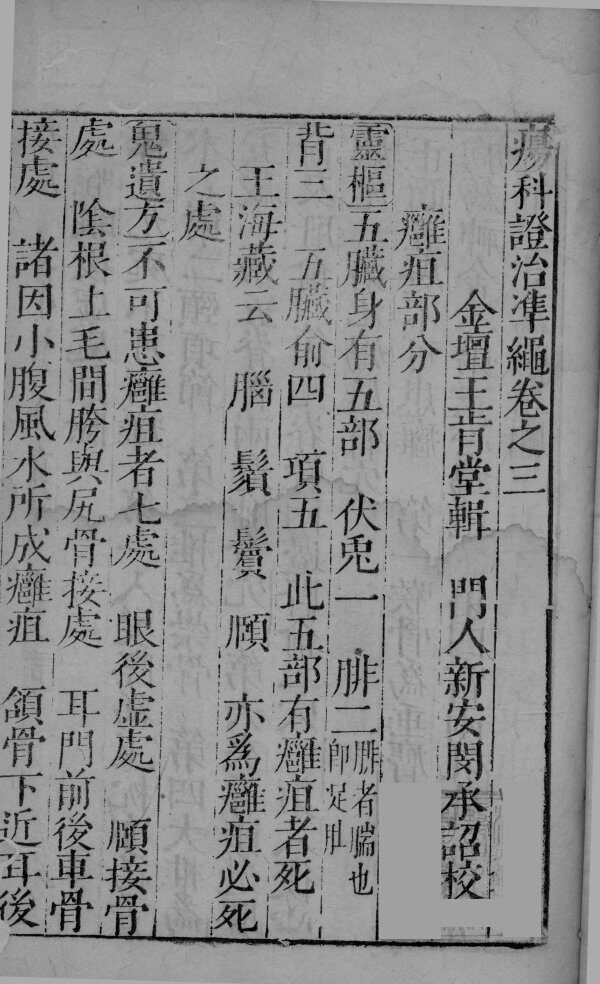 瘍科證治準繩卷之三
金壇王肯堂輯　門人新安閔承詔校
癰疽部分
靈樞五臟身有五部　伏兎一　腓二腓者腨也卽足肚
背三　五臟俞四　項五　此五部有癰疽者死
王海藏云　腦　鬚　鬢　頤　亦爲癰疽必死
之處
鬼遺方不可患癰疽者七處　眼後虛處　頤接骨
處　陰根上毛間胯與尻骨接處　耳門前後車骨
接處　諸因小腹風水所成癰疽　頷骨下近耳後